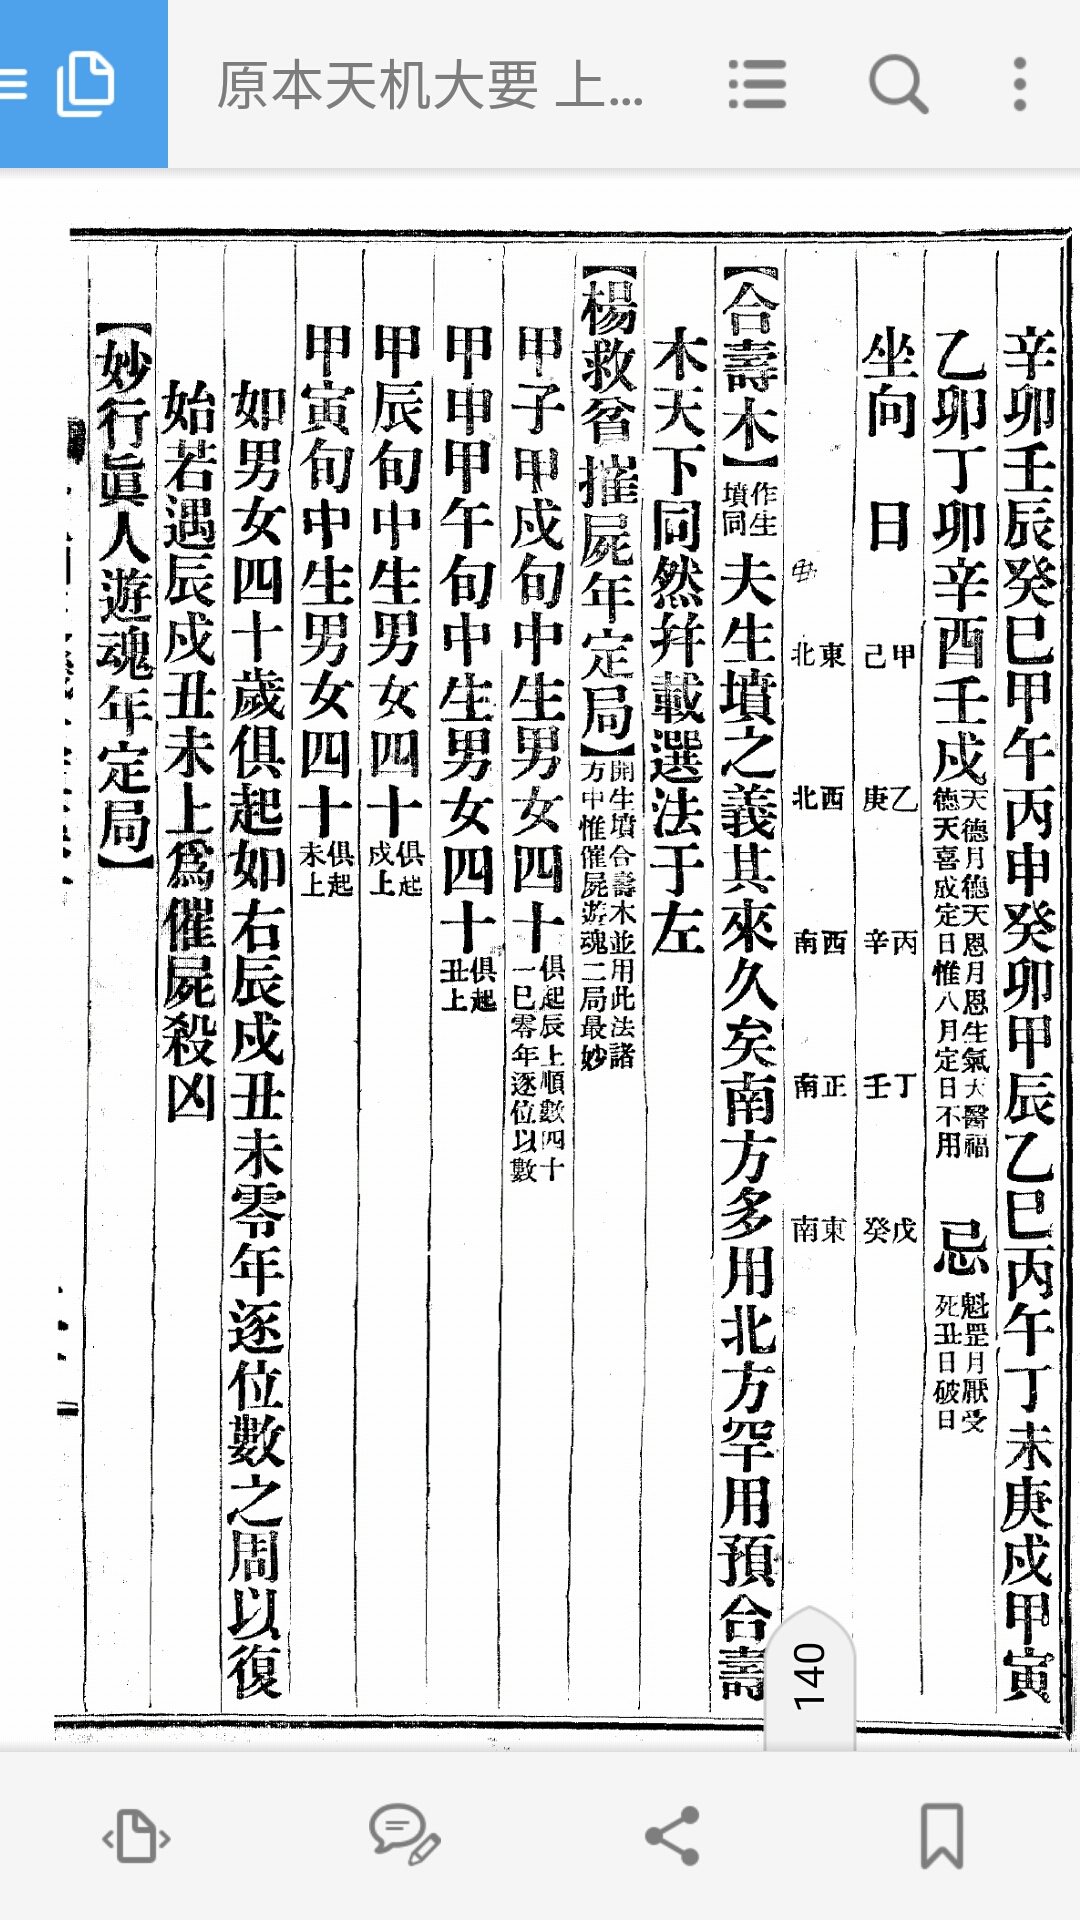 原本天机大要 上...
辛卯壬辰癸巳甲午丙申癸卯甲辰乙巳丙午丁未庚戍甲寅
乙卯丁卯辛酉壬戍
天德月德天恩月恩生氣大醫福
德天喜成定日惟八月定日不用
忌
魁罡月厭受
死丑日破日
坐向 日 甲己 乙庚 丙辛 丁壬 戊癸
東北 西北 西南 正南 東南
【合壽木】
作生
墳同
夫生墳之義其來久矣南方多用北方罕用預合壽
木天下同然幷載選法于左
【楊救貧摧屍年定局】
開生墳合壽木並用此法諸
方中惟催屍遊魂二局最妙
甲子甲戍旬中生男女四十
俱起辰上順數四十
一巳零年逐位以數
甲申甲午旬中生男女四十
俱起
丑上
甲辰旬中生男女四十
俱起
戍上
甲寅旬中生男女四十
俱起
未上
如男女四十歲俱起如右辰戍丑未零年逐位數之周以復
始若遇辰戍丑未上爲催屍殺凶
【妙行眞人遊魂年定局】
140